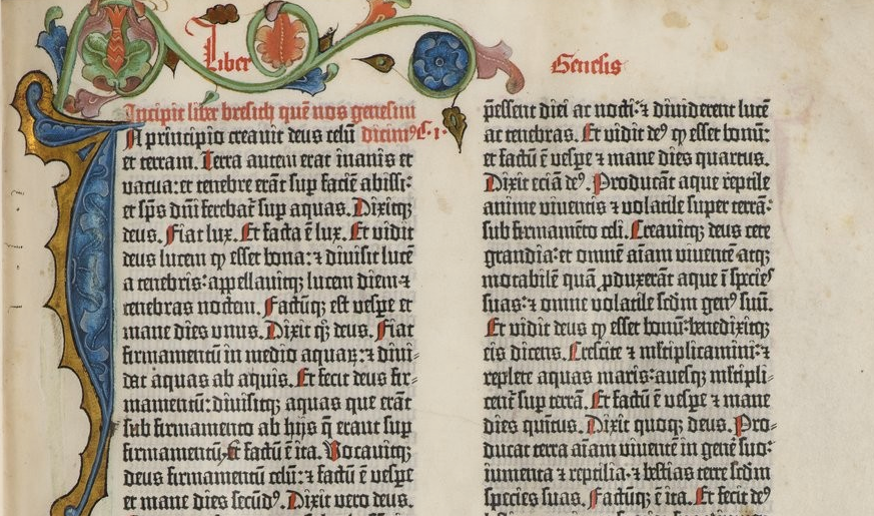 Liber Genesis
Incipit liber bresith quē nos genesim
dicimꝰ C. 1.
In principio creauit deus celū
et terram. Terra autem erat inanis et
vacua: et tenebre erāt sup faciē abissi:
et spūs dñi ferebat̄ sup aquas. Dixitqꝫ
deus. Fiat lux. Et facta ē lux. Et vidit
deus lucem ꝙ esset bona: ⁊ diuisit lucē
a tenebris: appellauitqꝫ lucem diem ⁊
tenebras noctem. Factūqꝫ est vespe et
mane dies vnus. Dixit qꝫ deus. Fiat
firmamentū in medio aquaꝝ: ⁊ diui⸗
dat aquas ab aquis. Et fecit deus fir⸗
mamentū: diuisitqꝫ aquas que erāt
sub firmamento ab hijs q̄ erant sup
firmamentū: et factū ē ita. Vocauitqꝫ
deus firmamentū celū: ⁊ factū ē vespe
et mane dies secūdꝰ. Dixit vero deus.
p̄essent diei ac nocti: ⁊ diuiderent lucē
ac tenebras. Et vidit deꝰ ꝙ esset bonū:
et factū ē vespe ⁊ mane dies quartus.
Dixit eciā deꝰ. Producāt aque reptile
anime viuentis ⁊ volatile super terrā:
sub firmamēto celi. Creauitqꝫ deus cete
grandia: et omnē aīam viuentē atqꝫ
motabilē quā ꝓduxerāt aque ī species
suas: ⁊ omne volatile scdm genꝰ suū.
Et vidit deus ꝙ esset bonū: benedixitqꝫ
eis dicens. Crescite ⁊ mltiplicamini: ⁊
replete aquas maris: auesqꝫ mltipli⸗
cent̄ sup terrā. Et factū ē vespe ⁊ mane
dies quītus. Dixit quoqꝫ deus. Pro⸗
ducat terra aīam viuentē in genē suo:
iumenta ⁊ reptilia: ⁊ bestias terre scdm
species suas. Factūqꝫ ē ita. Et fecit deꝰ